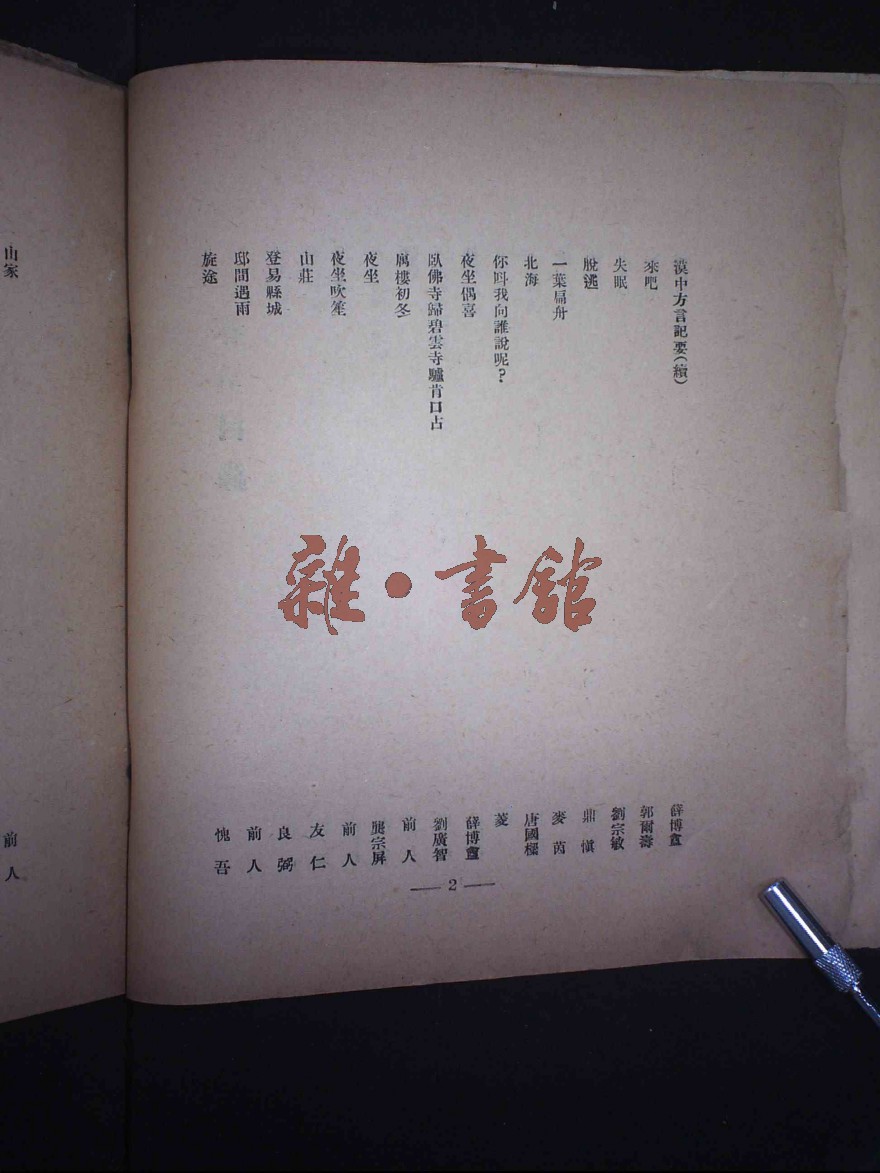 漠中方言記要(續)
薛博
來吧
郭爾壽
失眠
劉宗敏
脫逃
鼎愼
一葉扁舟
麥茵
北海
唐國樑
你叫我向誰說呢?
菱
夜坐偶喜
薛博
臥佛寺歸碧雲寺驢背口占
劉廣智
樓初冬
前人
夜坐
龔宗屏
夜坐吹笙
前人
山莊
友仁
登易縣城
良弼
邸間遇雨
前人
旋途
愧吾
— 2 —
山家
前人
目錄
雜·書館